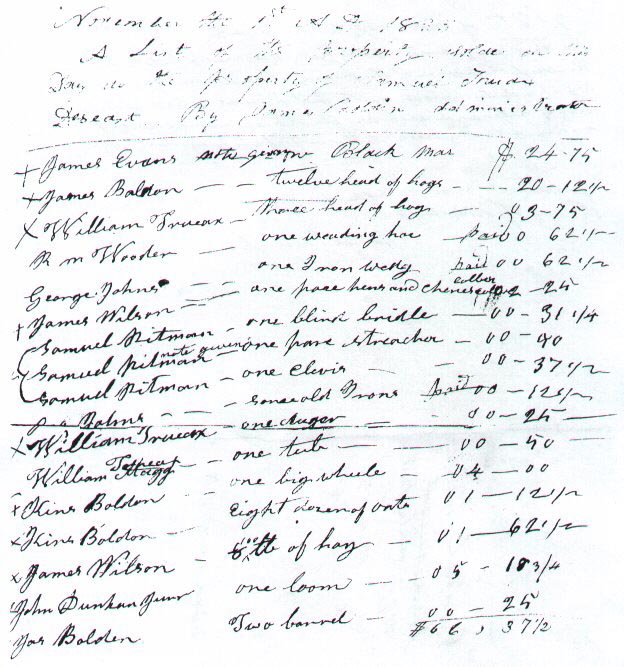 November the 1st A D 18
A List of the property solde on this
Day as the Property of Samuel Truax
Deseast By James Boldin administrator
+ James Evans note given Black mar $ 24-75
+ James Boldon — twelve head of hogs - - 20-12 1/2
X William Trueax — three head of hogs — 03-75
R m Wooder — one weading hoe — paid 00 62 1/2
George Johns — one Iron wedg paid 00 62 1/2
+ James Wilson — one pare hens and colber 25
Samuel Pitman — one blind bridle — 00-31 1/4
Samuel Pitman note given one pare streacher — 00-90
Samuel Pitman — one clevis — 00-37 1/2
Johns — some old Irons paid 00-12 1/2
X William Trueax — one Auger — 00-25
William — one tub — 00-50
+ Kins Boldon — one big wheele 04-00
x Kins Boldon — Eight dozen of oats 01-12 1/2
x James Wilson — of hay — 01-62 1/2
John Dunkan Junr one loom — 05-18 3/4
Jas Bolden Two barrel — 00-25
$66, 37 1/2